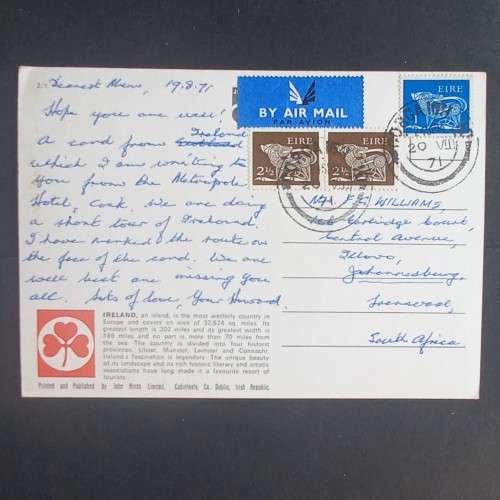 19.8.71
Hope you are well!
A card from Ireland
which I am sending to
you from the Metropole
Hotel, Cork. We are doing
a short tour of Ireland.
I have marked the route on
the face of the card. We are
well but are missing you
all. Lots of love, Your Howard.
BY AIR MAIL
PAR AVION
EIRE
2½ EIRE
2½ EIRE
20 VIII
71
WILLIAMS,
Court,
Central Avenue,
Illovo,
Johannesburg,
Transvaal,
South Africa
IRELAND, an island, is the most westerly country in
Europe and covers an area of 32,524 sq. miles. Its
greatest length is 302 miles and its greatest width is
189 miles and no part is more than 70 miles from
the sea. The country is divided into four historic
provinces, Ulster, Munster, Leinster and Connacht.
Ireland's fascination is legendary. The unique beauty
of its landscape and its rich historic literary and artistic
associations have long made it a favourite resort of
tourists.
Printed and Published by John Hinde Limited, Cabinteely, Co. Dublin, Irish Republic.